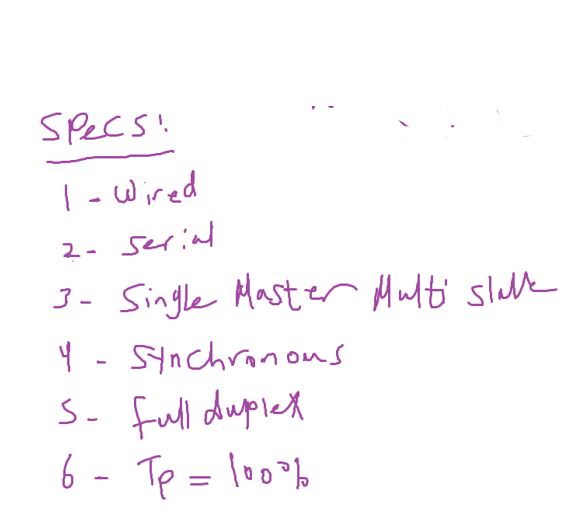 SPecS:
1 - Wired
2 - serial
3 - Single Master Multi slave
4 - Synchronous
5 - full duplex
6 - Tp = 100%